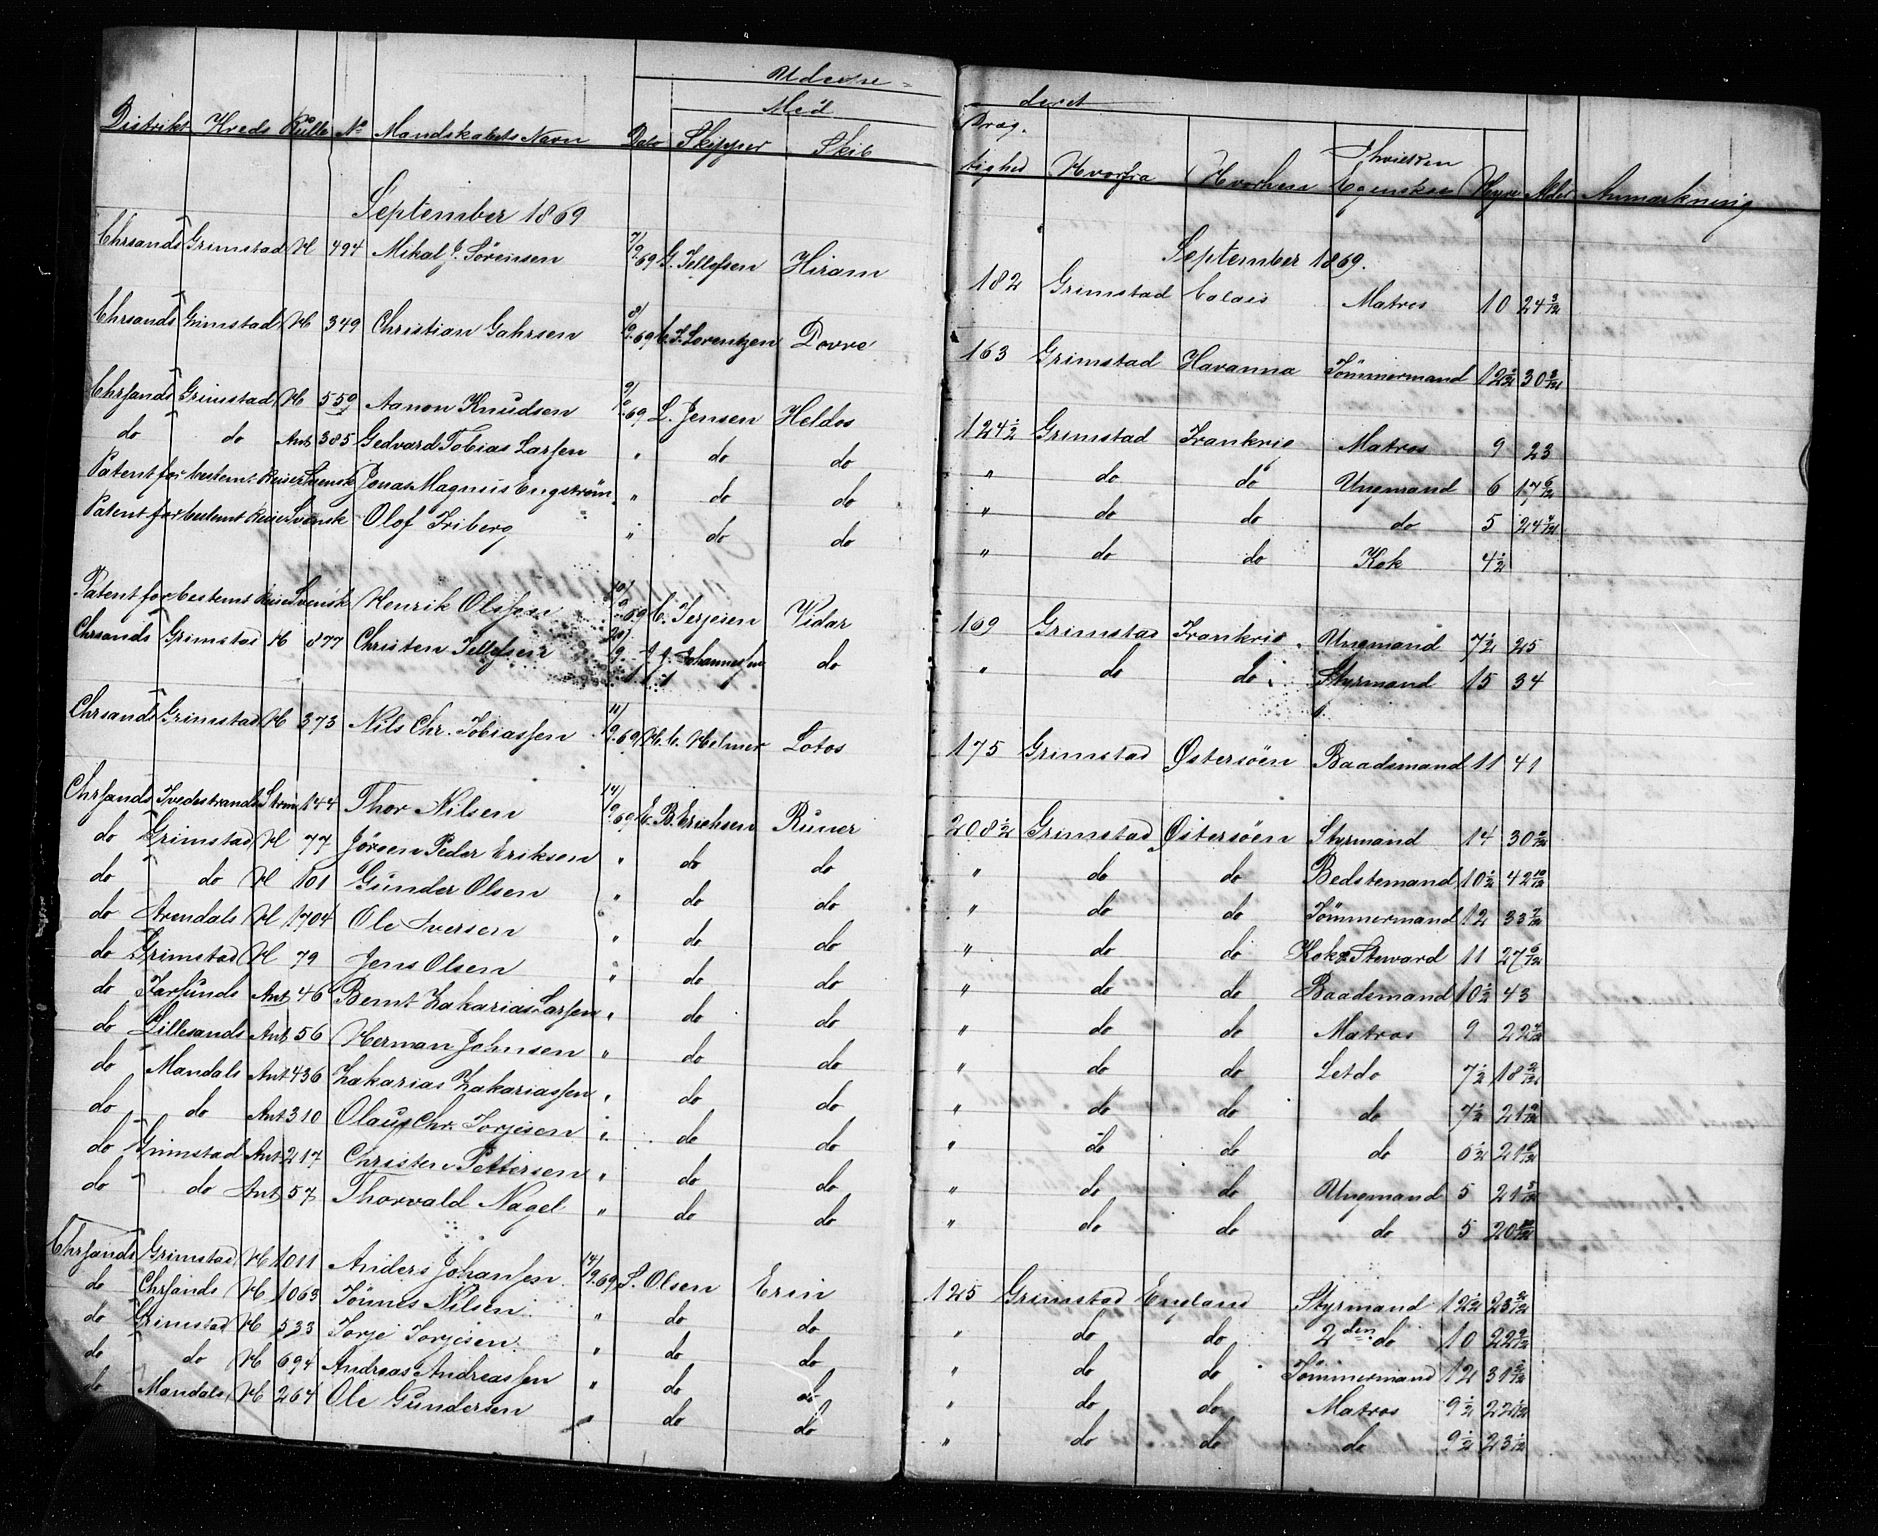 Udexpe = deret
Med
Distrikt Kreds Rulle No Mandskabets Navn Dato Skipper Skib Dræg- tighed Hvorfra Hvorhen Hvilken Egenskab Hyre Alder Anmærkning
September 1869 September 1869.
Chrsands Grimstad H 494 Mikal J. Sörensen 7/9 69 G. Tellefsen Hiram 182 Grimstad Calais Matros 10 24 3/12
Chrsands Grimstad H 349 Christian Gahrsen 8/9 69 C. F. Lorentzen Dovre 163 Grimstad Havanna Tömmermand 12 1/2 30 8/12
Chrsands Grimstad H 559 Aanon Knudsen 9/9 69 L. Jensen Heldos 124 1/2 Grimstad Frankrig Matros 9 23
do do Ant 385 Gedvard Tobias Larsen " do do " do do Ungmand 6 17 6/12
Patent for bestemt Reise Svensk Jonas Magnus Engström " do do " do do do 5 24 4/12
Patent for bestemt Reise Svensk Olof Friberg " do do " do do Kok 4 1/2
Patent for bestemt Reise Svensk Henrik Olsson 10/9 69 C. Terjesen Vidar 169 Grimstad Frankrig Ungmand 7 1/2 25
Chrsands Grimstad H 877 Christen Tellefsen 20/9 Johannesen do " do do Styrmand 15 34
Chrsands Grimstad H 373 Nils Chr. Tobiassen 11/9 69 H. C. Helmer Lotos 175 Grimstad Östersöen Baadsmand 11 41
Chrsands Tvedestrands Strm 144 Thor Nilsen 14/9 69 E. B. Erichsen Runer 208 1/2 Grimstad Östersöen Styrmand 14 30 2/12
do Grimstad H 77 Jörgen Peder Eriksen " do do " do do Bedstemand 10 1/2 42 10/12
do do H 101 Gunder Olsen " do do " do do Tömmermand 12 33 7/12
do Arendals H 1704 Ole Iversen " do do " do do Kok & Steward 11 27 6/12
do Grimstad H 79 Jens Olsen " do do " do do Baadsmand 10 1/2 43
do Farsunds Ant 46 Bernt Zakarias Larsen " do do " do do Matros 9 22 4/12
do Lillesands Ant 56 Herman Johnsen " do do " do do Letdo 7 1/2 18 2/12
do Mandals Ant 436 Zakarias Zakariassen " do do " do do do 7 1/2 21 9/12
do do Ant 310 Olaus Chr. Torjesen " do do " do do do 6 1/2 21 6/12
do Grimstad Ant 217 Christen Pettersen " do do " do do Ungmand 5 21 3/12
do do Ant 57 Thorvald Nagel " do do " do do do 5 20 10/12
Chrsands Grimstad H 1011 Anders Johansen 14/9 69 S. Olsen Erin 125 Grimstad England Styrmand 12 1/2 23 2/12
do Chrsands H 1063 Tönnes Nilsen " do do " do do 2den do 10 22 9/12
do Grimstad H 533 Torje Torjesen " do do " do do Tömmermand 12 31 2/12
do do H 694 Andreas Andreassen " do do " do do Matros 9 1/2 22 1/12
do Mandals H 264 Ole Gundersen " do do " do do do 9 1/2 23 1/12